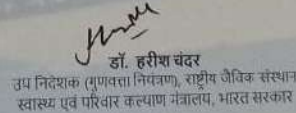 डॉ. हरीश चंदर
उप निदेशक (गुणवत्ता नियंत्रण), राष्ट्रीय जैविक संस्थान
स्वास्थ्य एवं परिवार कल्याण मंत्रालय, भारत सरकार